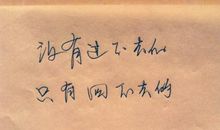 没有过不去的
只有回不去的